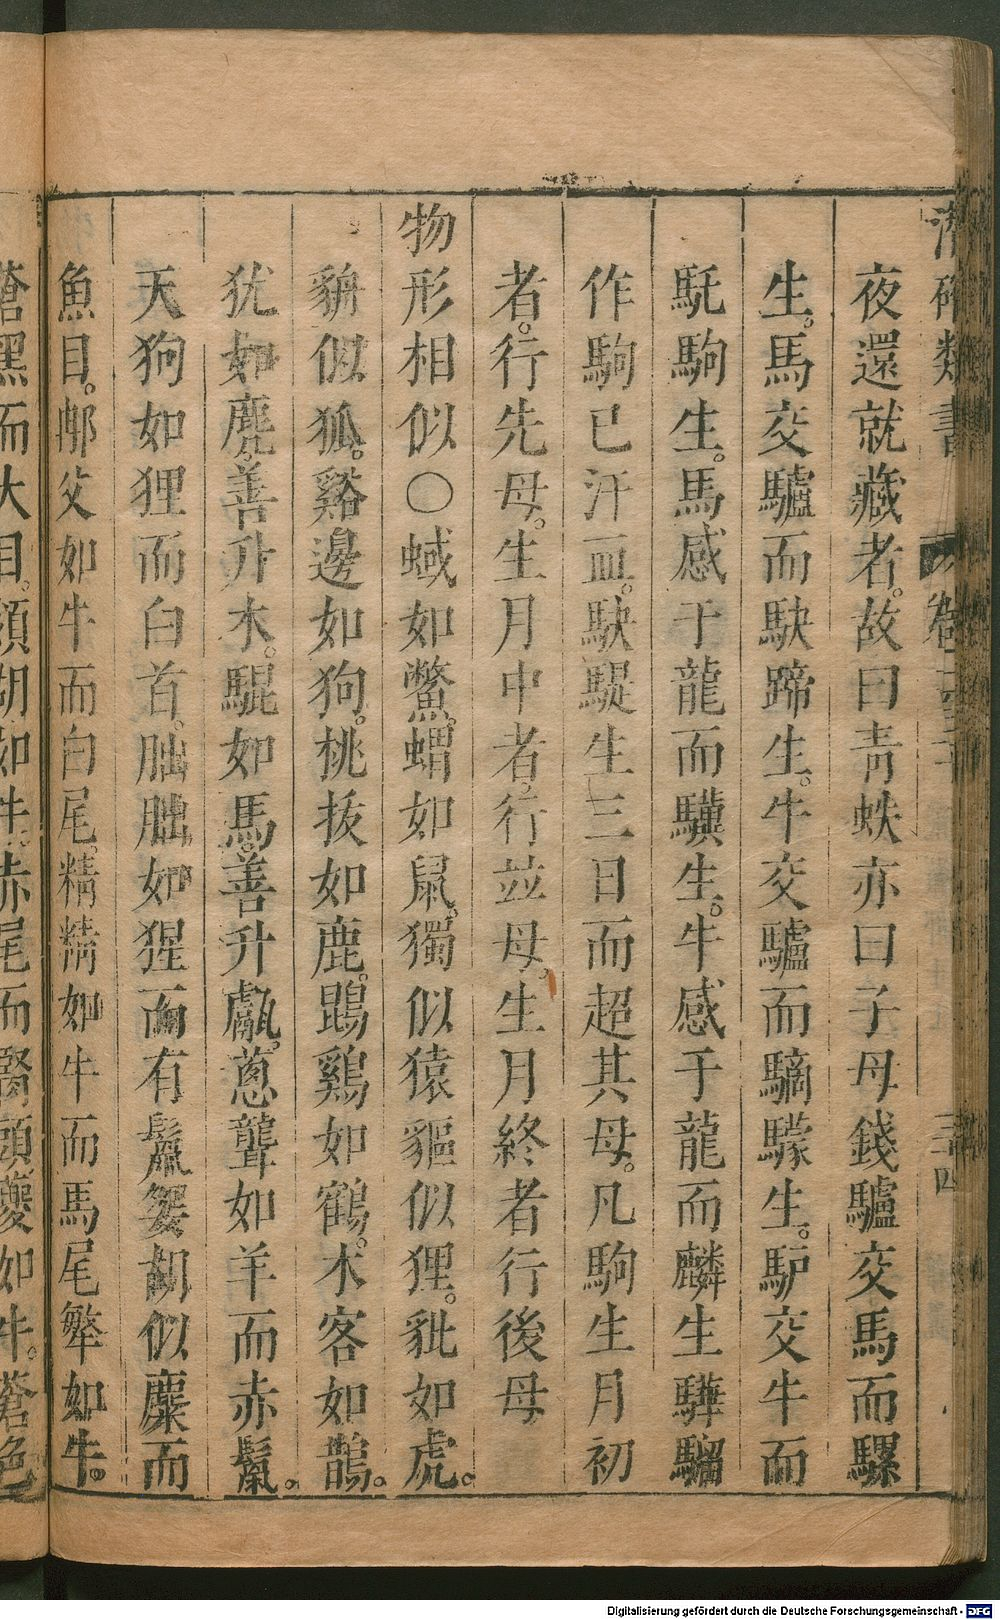 潛確類書 卷一百十 三十四
夜還就藏者。故曰青蚨亦曰子母錢驢交馬而騾
生。馬交驢而駃蹄生。牛交驢而驈驝生。馿交牛而
馲駒生。馬感于龍而驥生。牛感于龍而麟生驊騮
作駒已汗血。駃騠生三日而超其母。凡駒生月初
者。行先母。生月中者。行並母。生月終者行後母
物形相似〇蜮如鱉。蝟如鼠。獨似猿貙似狸。豼如虎。
貈似狐。谿邊如狗。桃拔如鹿。鵾鷄如鶴。木客如鵲。
犹如麂。善升木。騉如馬。善升甗。蔥聾如羊而赤鬣。
天狗如狸而白首。朏朏如狸而有鬣㝹䎡似麋而
魚目。䣙父如牛而白尾。精精如牛而馬尾犖如牛。
蒼黑而大目。領胡如牛。赤尾而䐡頭夔如牛。蒼色
Digitalisierung gefördert durch die Deutsche Forschungsgemeinschaft - DFG